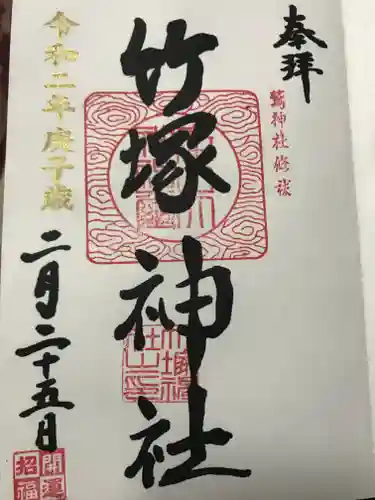 奉拝
鷲神社修祓
竹塚神社
令和二年庚子歳
二月二十五日
開運
招福